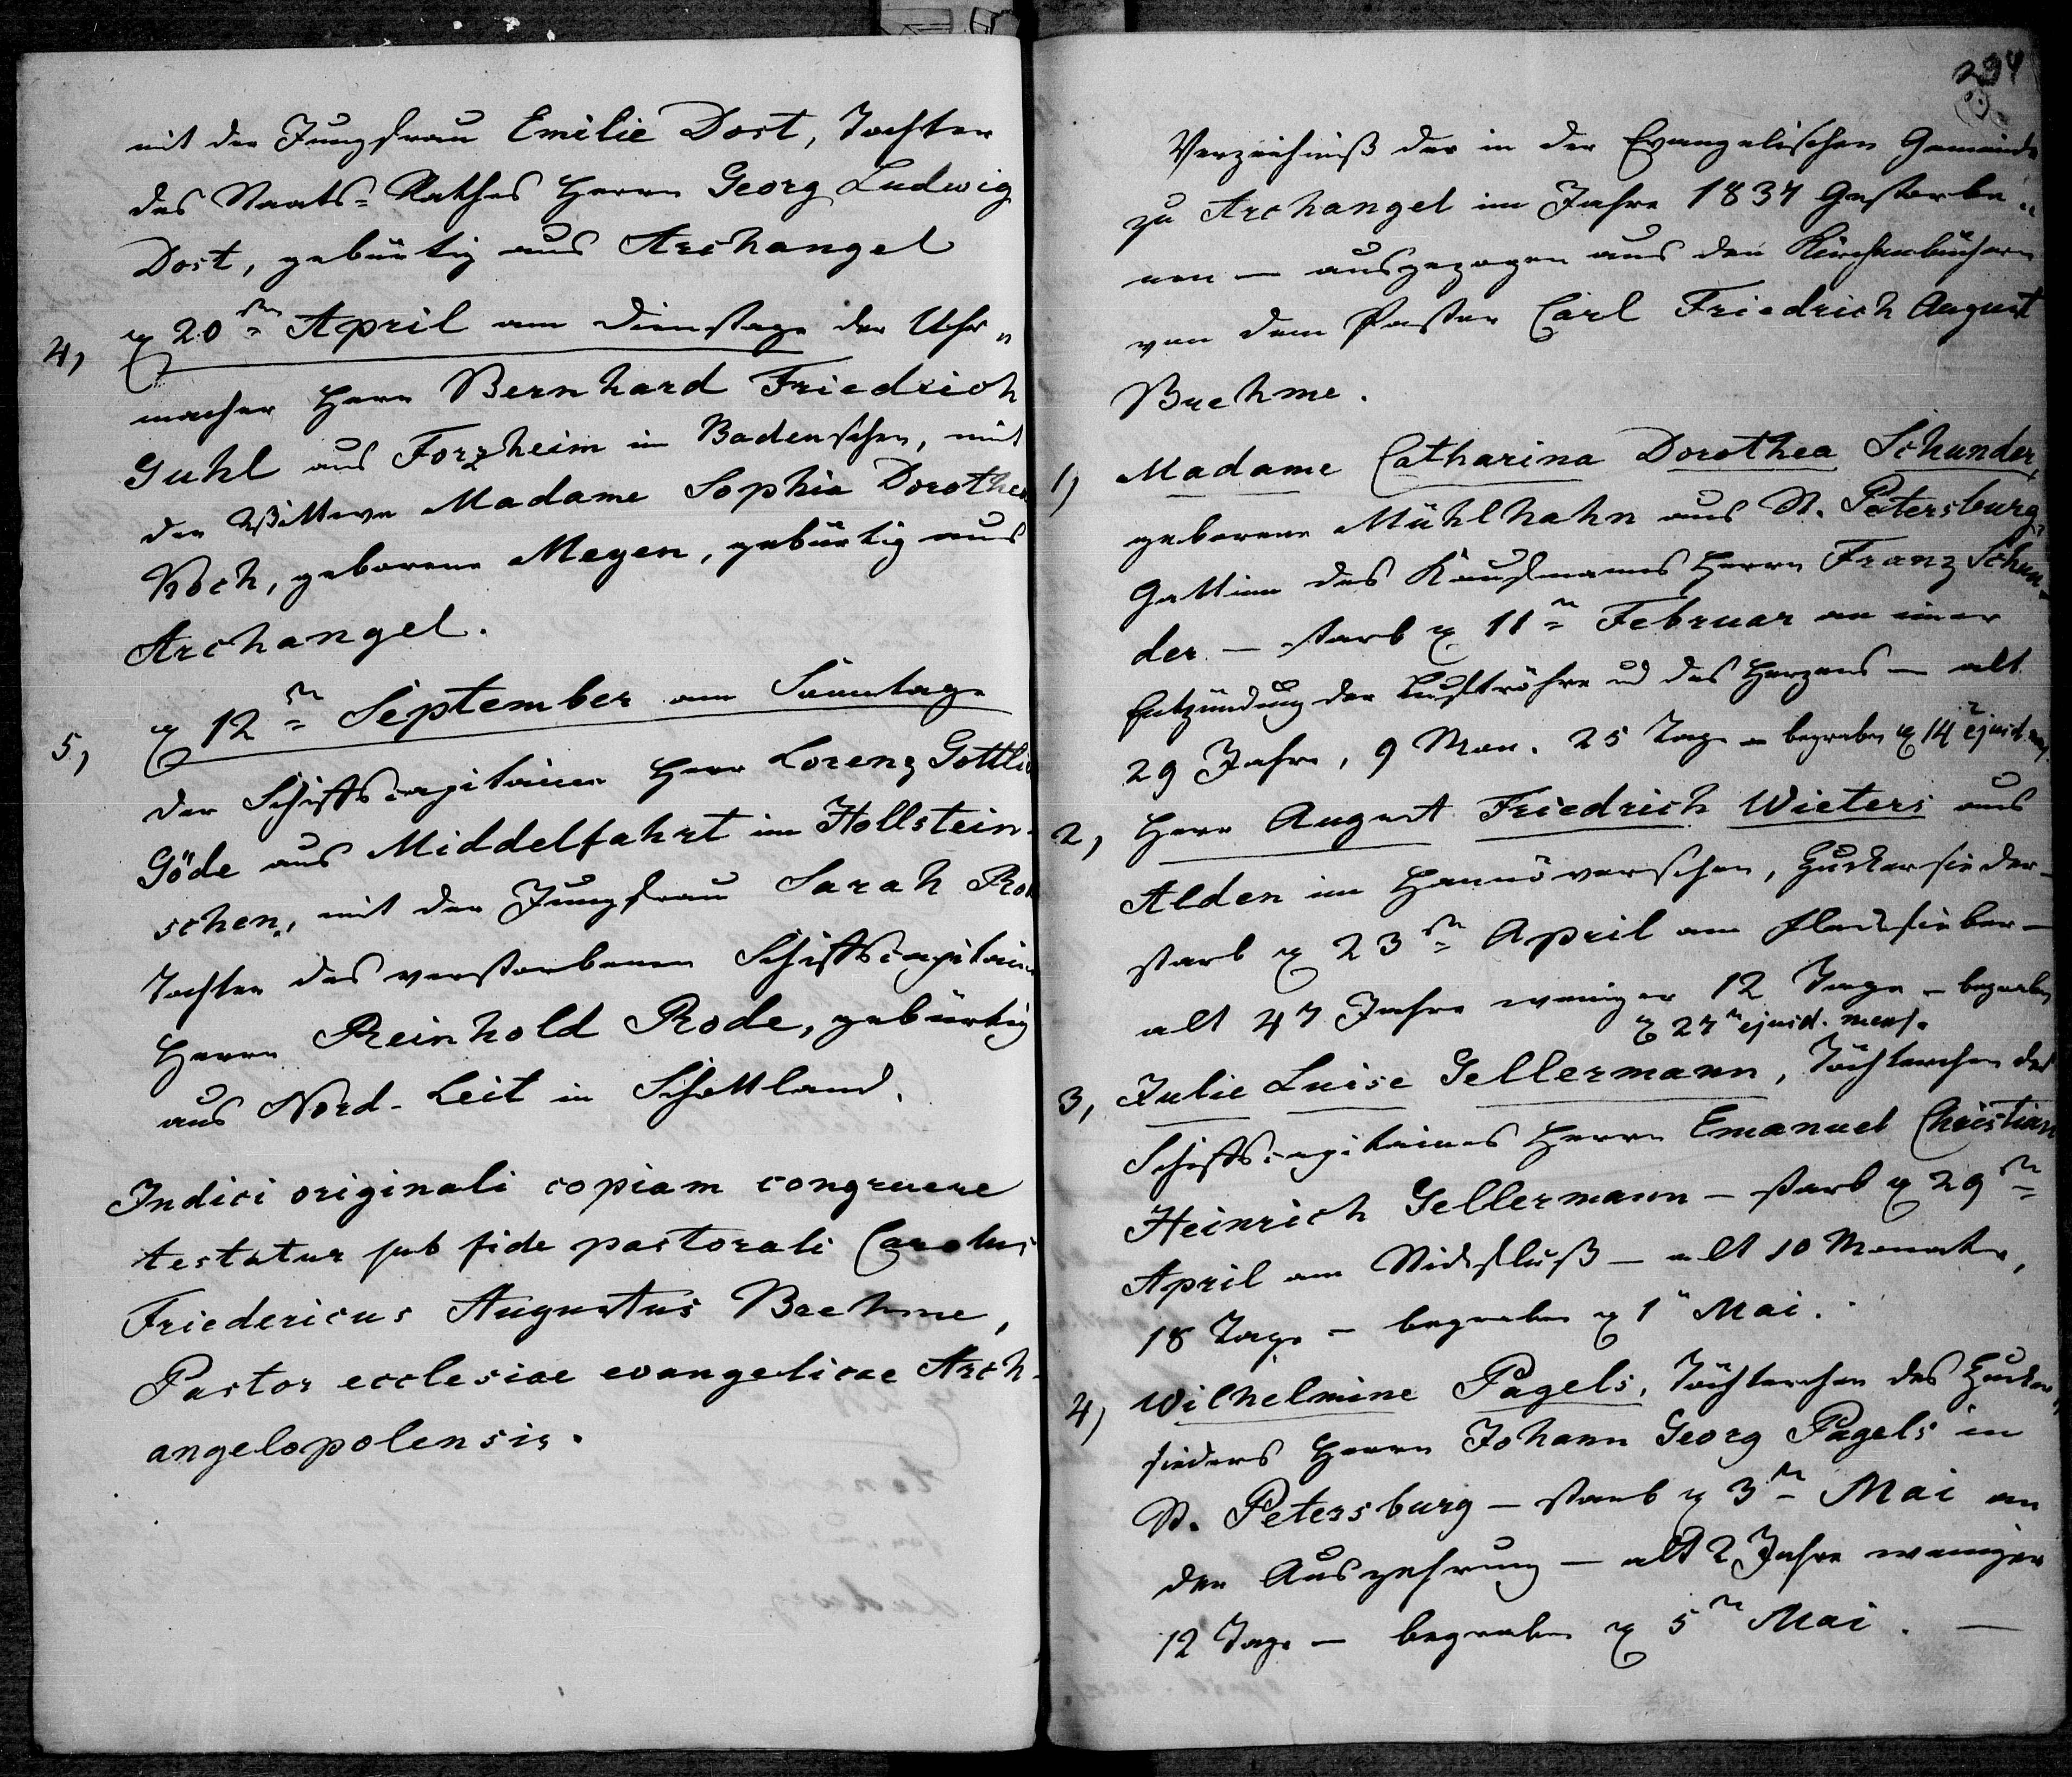 mit der Jungfrau Emilie Dost, Tochter
des Staats-Rathes Herrn Georg Ludwig
Dost, gebürtig aus Archangel
4, 20sten April am Dienstage der Uhr„
macher Herr Bernhard Friedrich
Guhl aus Forzheim im Badenschen, mit
der Wittwe Madame Sophia Dorothea
Koch, geborene Meyen, gebürtig aus
Archangel.
5, 12ten September am Sonntage
der Schiffscapitaine Herr Lorenz Gottli
Göde aus Middelfahrt im Hollstein-
schen, mit der Jungfrau Sarah Ro
Tochter des verstorbenen Schiffscapitain
Herrn Reinhold Rode, gebürtig
aus Nord-Leit in Schottland.
Indici originali copiam congruere
testatur sub fide pastorali Carolus
Friedericus Augustus Brehme,
Pastor ecclesiae evangelicae Arch-
angelopolensis.
234
Verzeichniß der in der Evangelischen Gemeinde
zu Archangel im Jahre 1834 Gestorbe„
nen — ausgezogen aus den Kirchenbüchern
von dem Pastor Carl Friedrich August
Brehme.
1, Madame Catharina Dorothea Schunder,
geborene Mühlhahn aus St. Petersburg,
Gattinn des Kaufmanns Herrn Franz Schun-
der — starb 11ten Februar an einer
Entzündung der Luftröhre ud des Herzens — alt
29 Jahre, 9 Mon. 25 Tage — begraben 14 ejusd. mens.
2, Herr August Friedrich Wieters aus
Alden im Hannöverschen, Zuckersieder —
starb 23sten April am Fleckfieber —
alt 47 Jahre weniger 12 Tage — begraben
27n ejusd. mens.
3, Julie Luise Gellermann, Töchterchen des
Schiffscapitaines Herrn Emanuel Christian
Heinrich Gellermann — starb 29sten
April am Stickfluß — alt 10 Monate,
18 Tage — begraben 1n Mai.
4, Wilhelmine Pagels, Töchterchen des Zucker„
sieders Herrn Johann Georg Pagels in
St. Petersburg — starb 3ten Mai an
der Auszehrung — alt 2 Jahre weniger
12 Tage — begraben 5ten Mai. —